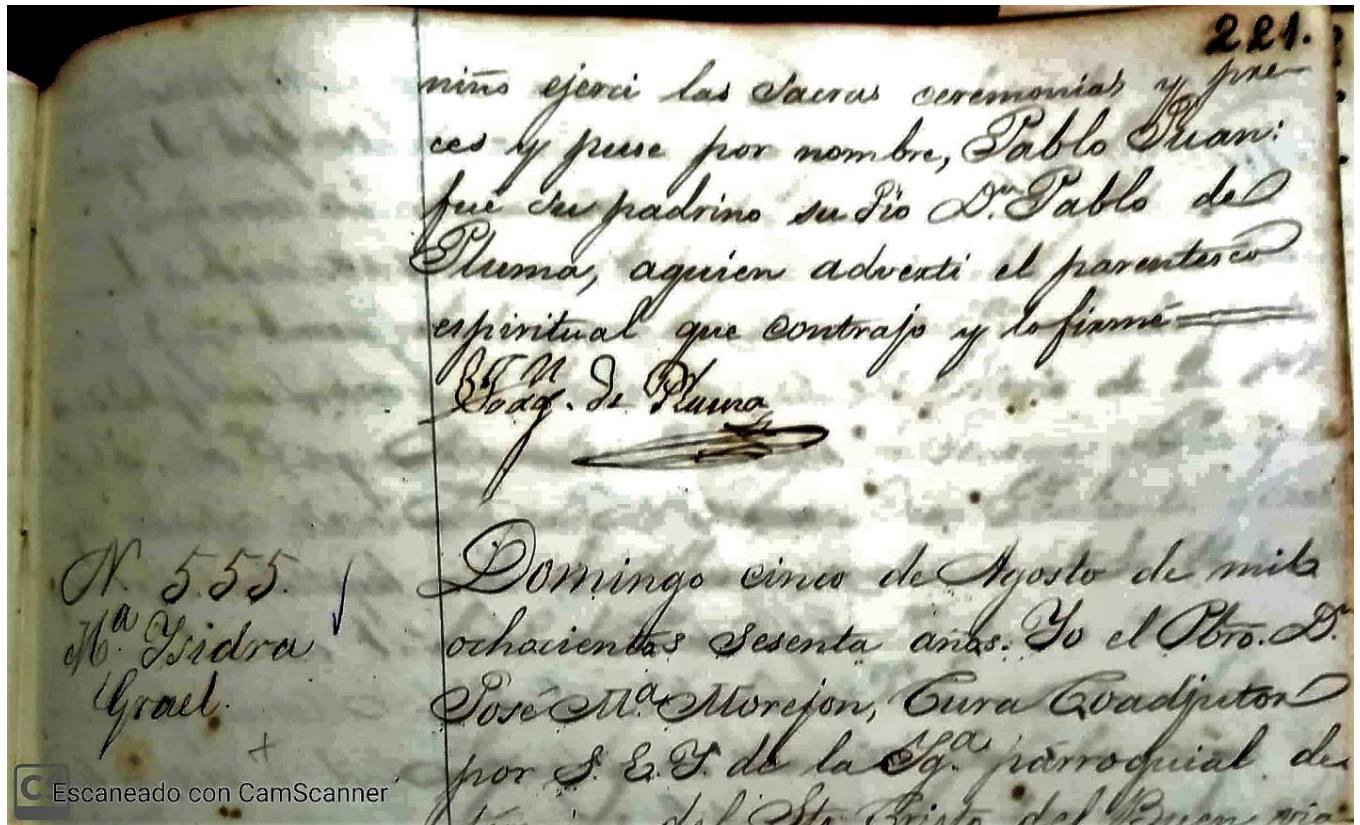 221.
niño ejerci las sacras ceremonias y pre-
ces y puse por nombre, Pablo Juan:
fué su padrino su tio Dn. Pablo de
Pluma, aquien adverti el parentesco
espiritual que contrajo y lo firmé
Joaq. de Pluma
N. 555.
Ma. Ysidra
Grael.
Domingo cinco de Agosto de mil
ochocientos sesenta años. Yo el Pbro. D.
José Ma. Morejon, Cura Coadjutor
por S. E. Y. de la Yga. parroquial de
del Sto. Cristo del Buen via-
CS Escaneado con CamScanner